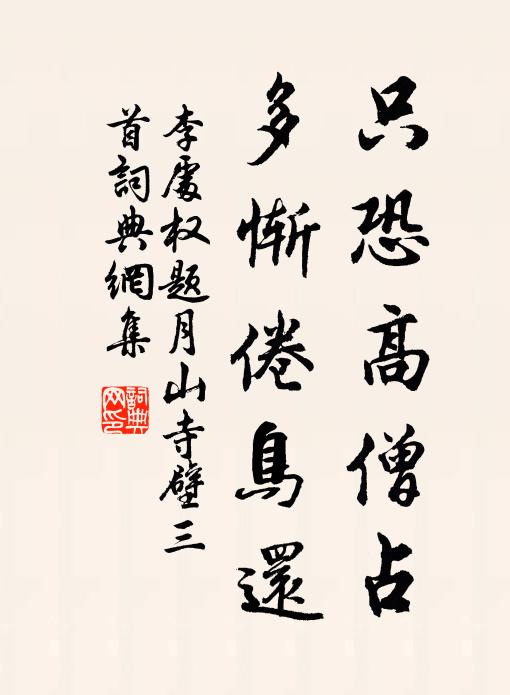 只恐高僧占
多慚倦鳥還
李處权题月山寺壁三
首詞典網集
詞典
网印